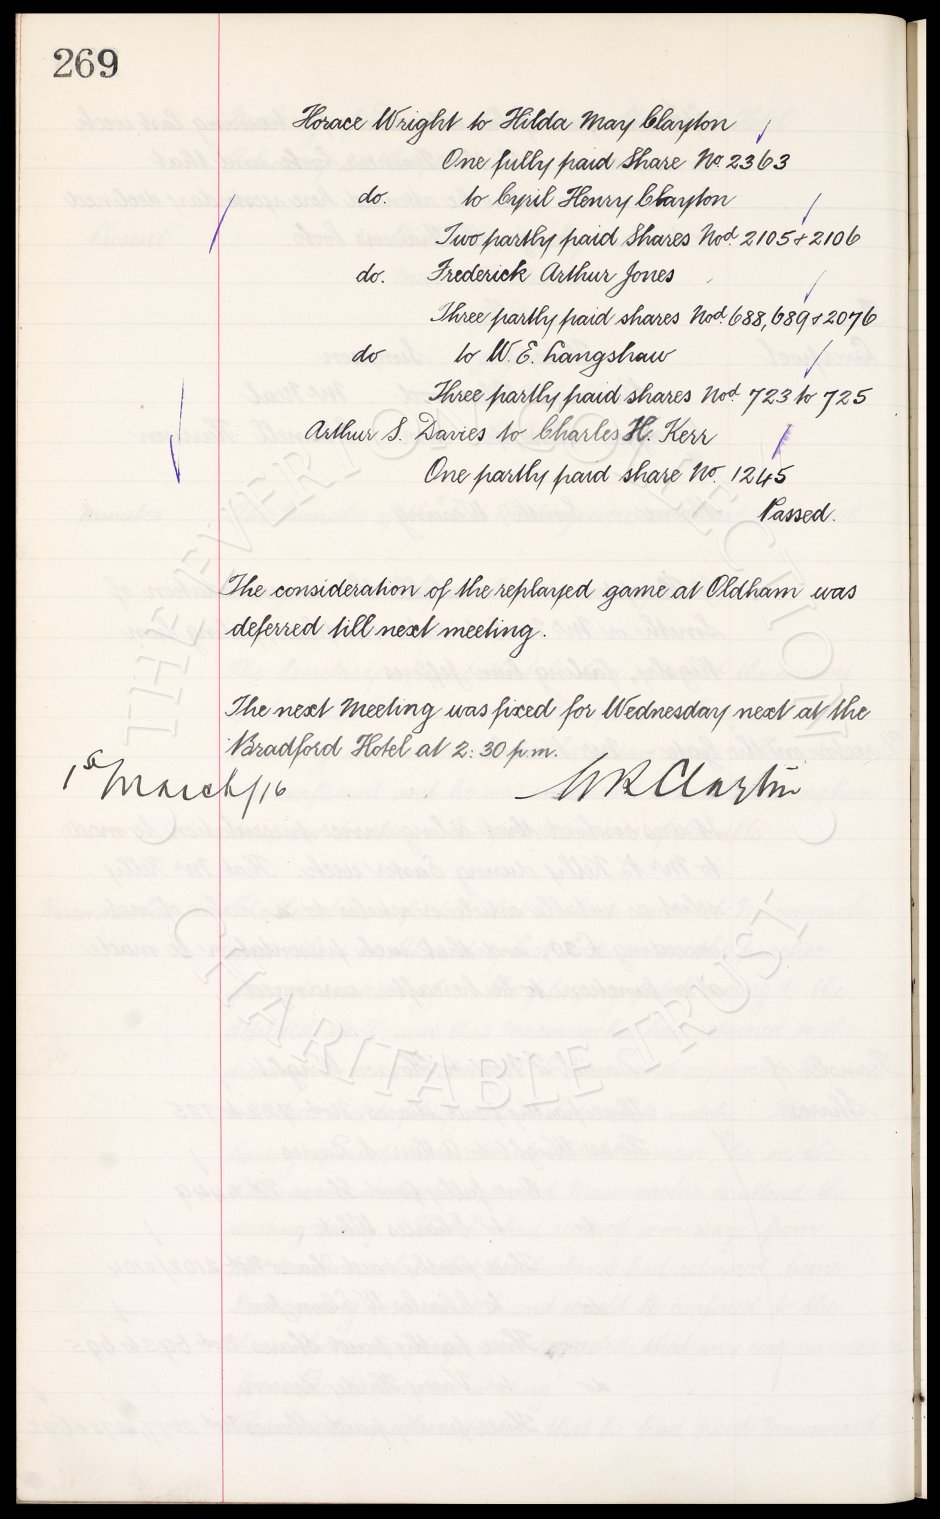 269
Horace Wright to Hilda May Clayton
One fully paid Share No. 2363
do. to Cyril Henry Clayton
Two partly paid Shares Nod. 2105 & 2106
do. Frederick Arthur Jones
Three partly paid shares Nod. 688, 689 & 2076
do to W. E. Langshaw
Three partly paid shares Nod. 723 to 725
Arthur S. Davies to Charles H. Kerr
One partly paid share No. 1245
Passed.
The consideration of the replayed game at Oldham was
deferred till next meeting.
The next Meeting was fixed for Wednesday next at the
Bradford Hotel at 2:30 p.m.
1st March/16 W R Clayton
© THE EVERTON COLLECTION
CHARITABLE TRUST